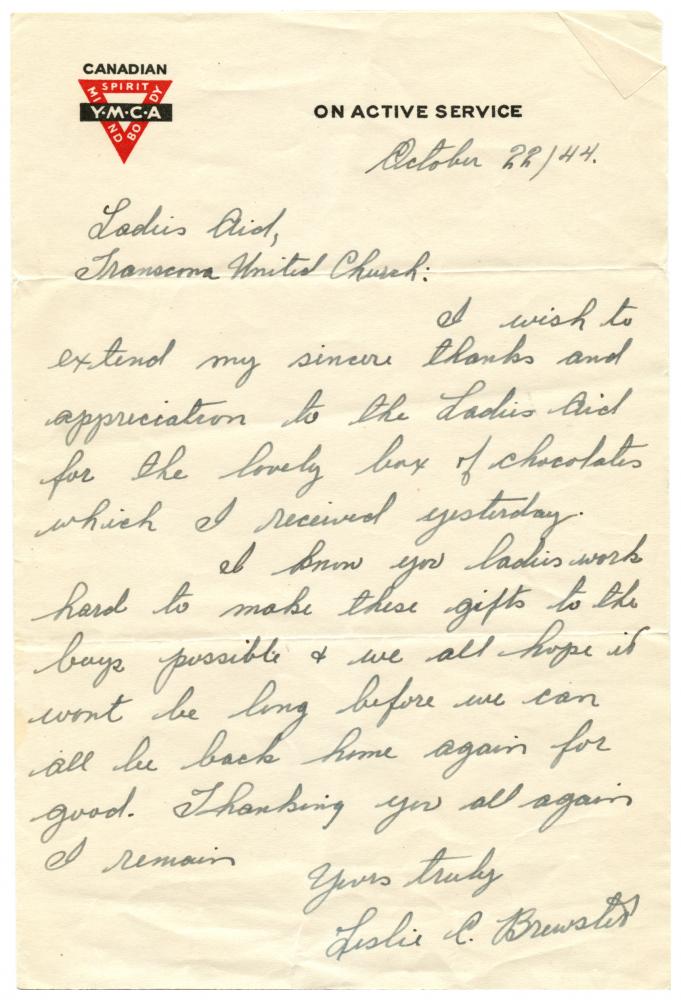 CANADIAN
SPIRIT
MIND
BODY
Y·M·C·A
ON ACTIVE SERVICE
October 22/44.
Ladies Aid,
Transcona United Church:
I wish to
extend my sincere thanks and
appreciation to the Ladies Aid
for the lovely box of chocolates
which I received yesterday.
I know you ladies work
hard to make these gifts to the
boys possible & we all hope it
wont be long before we can
all be back home again for
good. Thanking you all again
I remain
Yours truly
Leslie C. Brewster